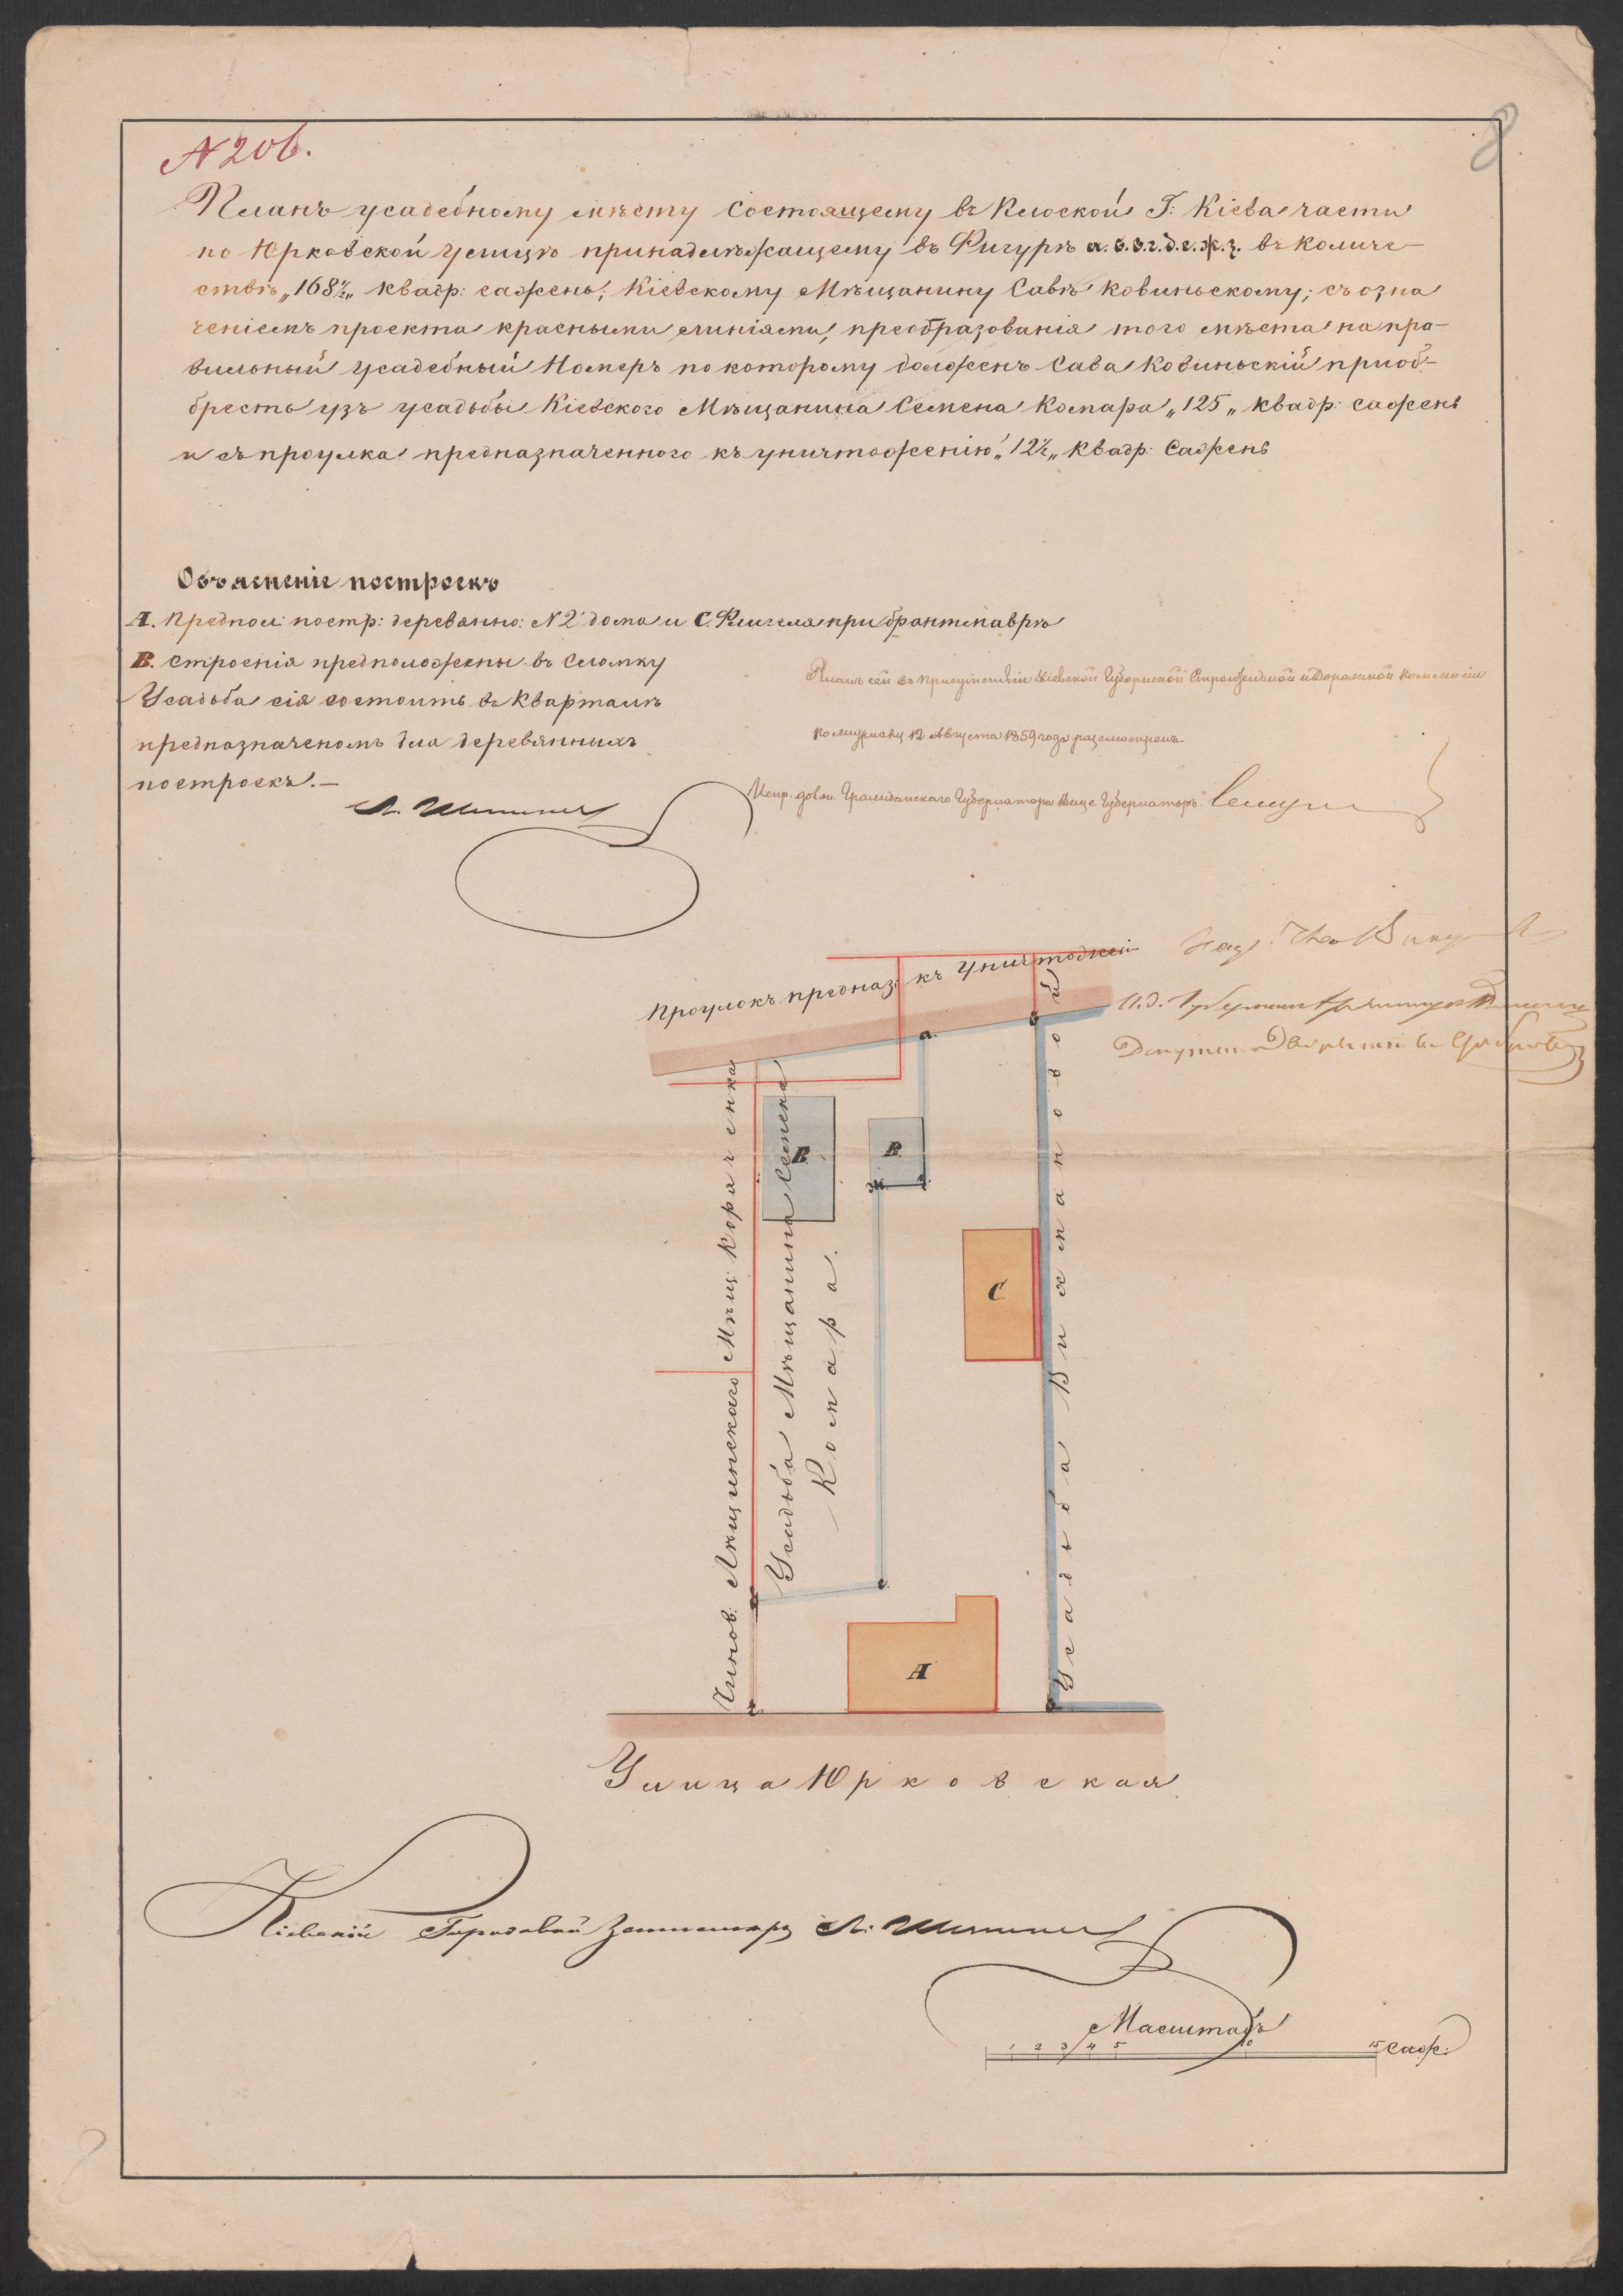 N 206.
8
Планъ усадебному мѣсту состоящему въ Плоской Г: Кіева части
по Юрковской улицѣ принадлѣжащему въ Фигурѣ а. б. в. г. д. е. ж. з. въ количе-
ствѣ „168½„ квадр: сажень, Кіевскому Мѣщанину Савѣ Ковиньскому; съ озна
ченіемъ проекта красными линіями, преобразованія того мѣста на пра-
вильный усадебный Номеръ по которому долженъ Сава Ковиньскій пріоб-
бресть узъ усадьбы Кіевского Мѣщанина Семена Комара „125„ квадр: сажень
и съ проулка предназначенного къ уничтоженію „12½„ квадр: сажень
Объясненіе построекъ
А. Предпол: постр: деревянно: N 2 дома и С. Флигеля при брантмаврѣ
В. строенія предположены въ сломку
Усадьба сія состоитъ въ Кварталѣ
предназначеномъ для деревянныхъ
построекъ.—
Планъ сей въ присутствіи Кіевской Губернской Строительной и Дорожной Коммисіи
по журналу 12 Августа 1859 года разсмотренъ.
Испр. долж. Гражданскаго Губернатора Вице Губернаторъ
Проулокъ предназ: къ Уничтожені
а.
б
В.
В.
ж
С
е
А
г
в
Чинов: Лѣщинскаго Мѣщ: Корличенка
Усадьба Мѣщанина Семена
Комара.
Усадьба Вижмановой
Улица Юрковская
Кіевскій Городовой Землемѣръ
Масштабъ
1 2 3 4 5 10 15 саж: